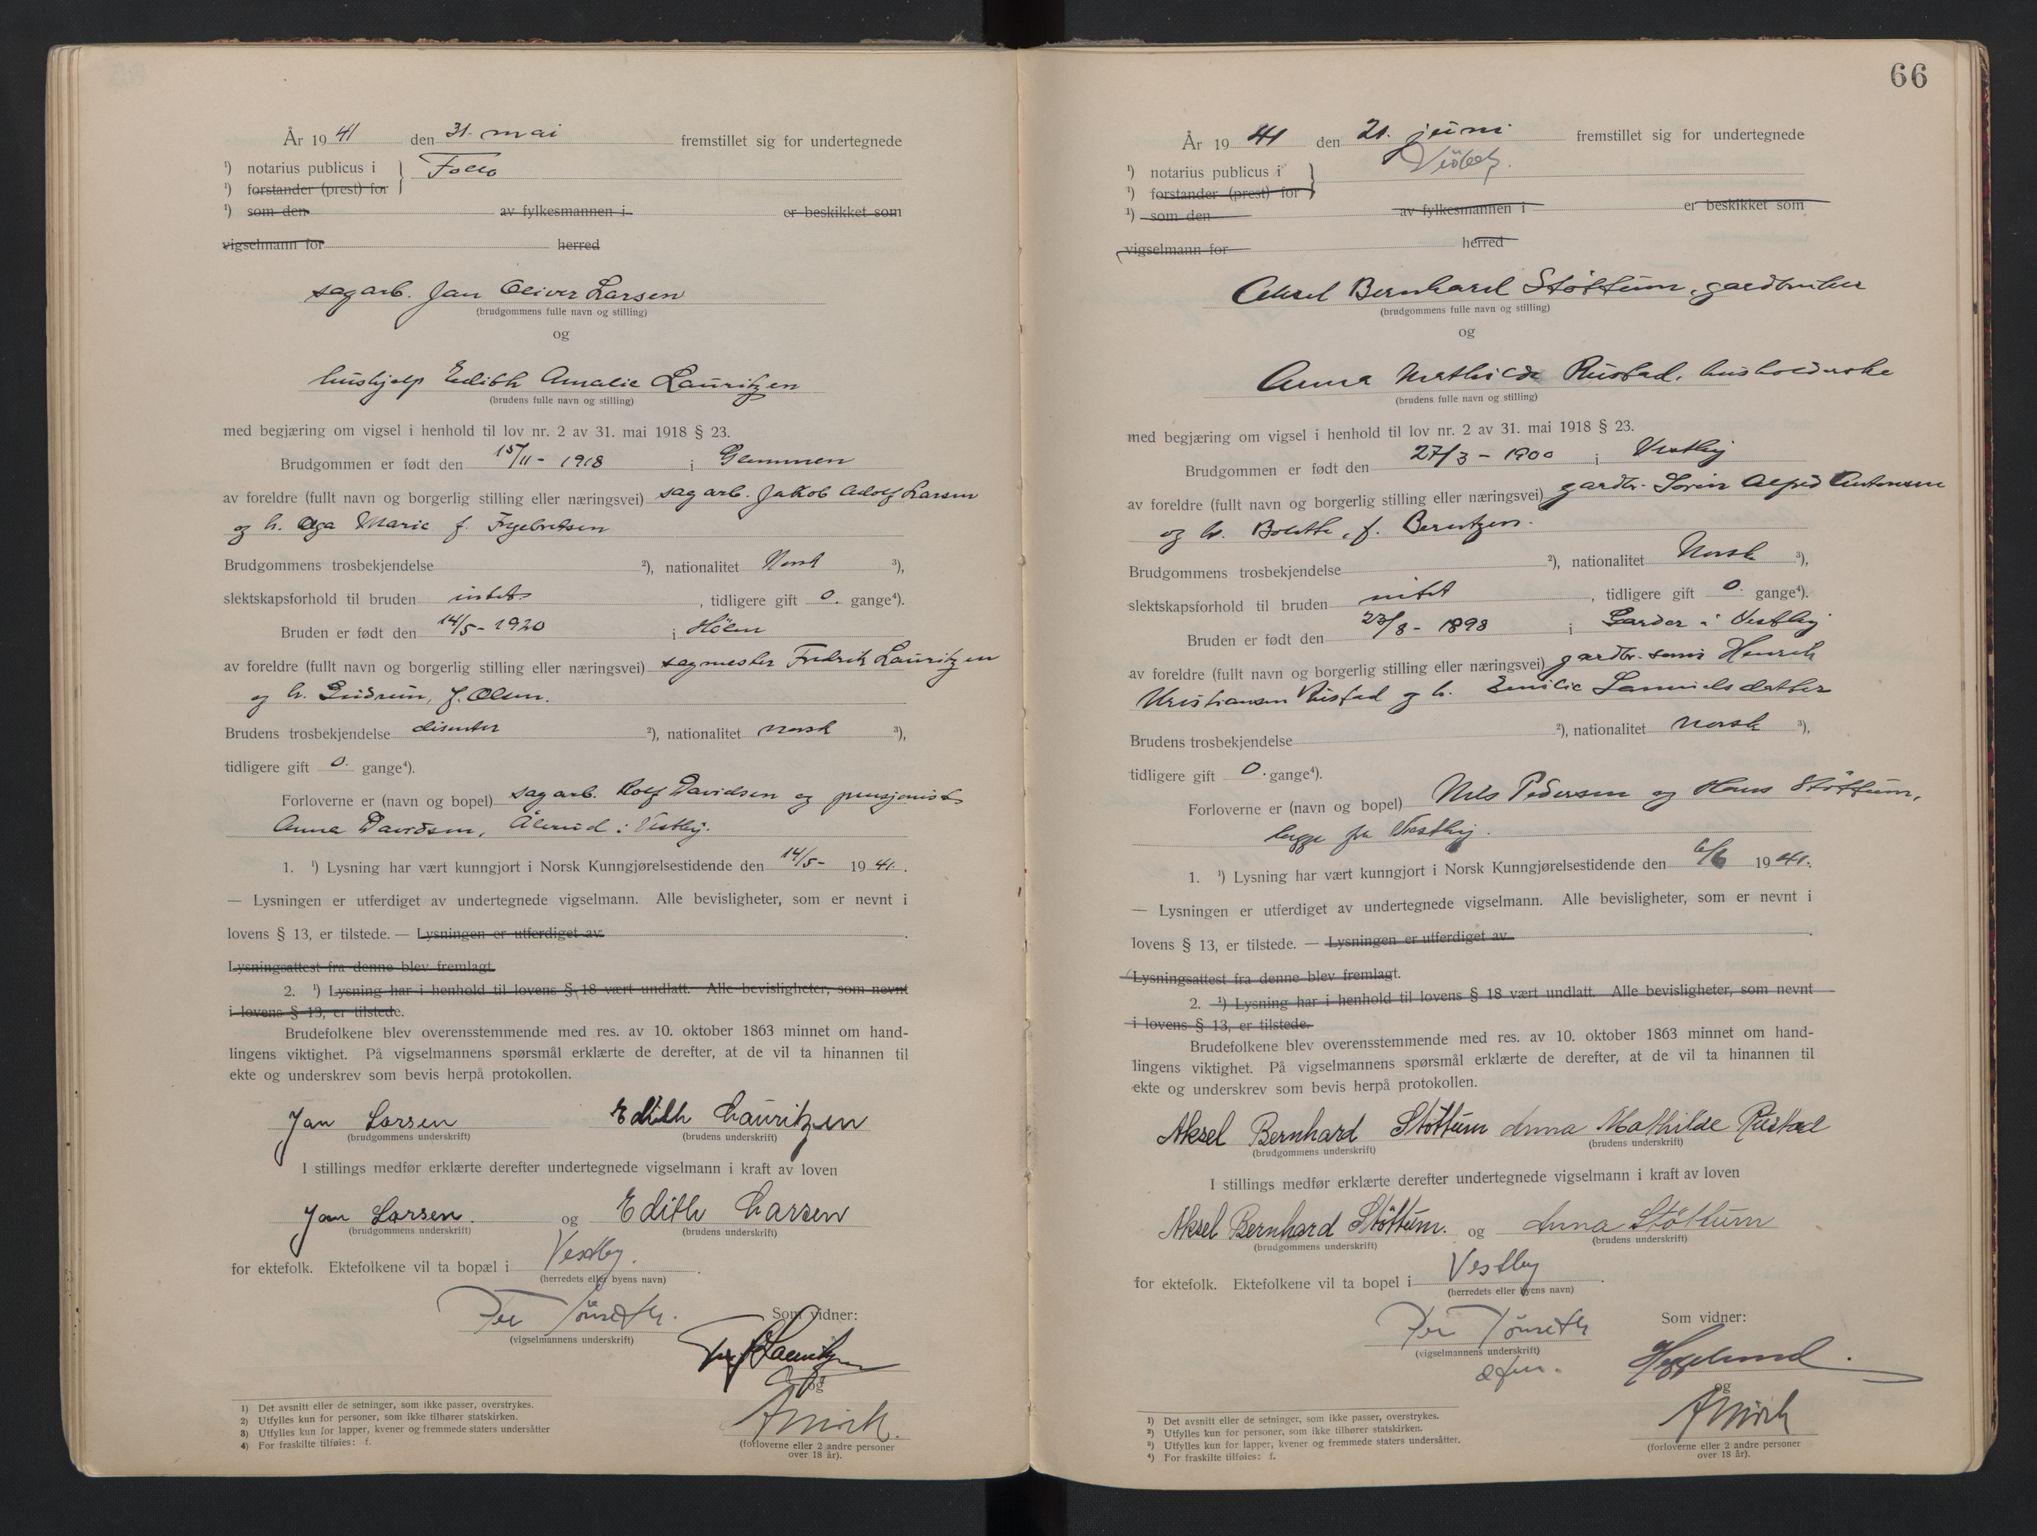 År 1941 den 31. mai fremstillet sig for undertegnede
¹) notarius publicus i } Follo
¹) forstander (prest) for
¹) som den av fylkesmannen i er beskikket som
vigselmann for herred
sagarb. Jan Oliver Larsen
(brudgommens fulle navn og stilling)
og
hushjelp Edith Amalie Lauritzen
(brudens fulle navn og stilling)
med begjæring om vigsel i henhold til lov nr. 2 av 31. mai 1918 § 23.
Brudgommen er født den 15/11 - 1918 i Glemmen
av foreldre (fullt navn og borgerlig stilling eller næringsvei) sagarb. Jakob Adolf Larsen
og h. Aga Marie f. Ingebretsen
Brudgommens trosbekjendelse ²), nationalitet Norsk ³),
slektskapsforhold til bruden intet , tidligere gift 0. gange⁴).
Bruden er født den 14/5 - 1920 i Hölen
av foreldre (fullt navn og borgerlig stilling eller næringsvei) sagmester Fredrik Lauritzen
og h. Gudrun, f. Olsen.
Brudens trosbekjendelse disenter ²), nationalitet norsk ³),
tidligere gift 0. gange⁴).
Forloverne er (navn og bopel) sagarb. Rolf Davidsen og pensjonist
Anna Davidsen, i Vestby.
1. ¹) Lysning har vært kunngjort i Norsk Kunngjørelsestidende den 14/5 - 1941.
— Lysningen er utferdiget av undertegnede vigselmann. Alle bevisligheter, som er nevnt i
lovens § 13, er tilstede. — Lysningen er utferdiget av
Lysningsattest fra denne blev fremlagt.
2. ¹) Lysning har i henhold til lovens § 18 vært undlatt. Alle bevisligheter, som nevnt
i lovens § 13, er tilstede.
Brudefolkene blev overensstemmende med res. av 10. oktober 1863 minnet om hand-
lingens viktighet. På vigselmannens spørsmål erklærte de derefter, at de vil ta hinannen til
ekte og underskrev som bevis herpå protokollen.
Jan Larsen Edith Lauritzen
(brudgommens underskrift) (brudens underskrift)
I stillings medfør erklærte derefter undertegnede vigselmann i kraft av loven
Jan Larsen. og Edith Larsen
(brudgommens underskrift) (brudens underskrift)
for ektefolk. Ektefolkene vil ta bopæl i Vestby.
(herredets eller byens navn)
Per Tönseth. Som vidner:
(vigselmannens underskrift)
Lauritzen
og
(forloverne eller 2 andre personer
over 18 år).
1) Det avsnitt eller de setninger, som ikke passer, overstrykes.
2) Utfylles kun for personer, som ikke tilhører statskirken.
3) Utfylles kun for lapper, kvener og fremmede staters undersåtter
4) For fraskilte tilføies: f.
66
År 1941 den 21. juni fremstillet sig for undertegnede
¹) notarius publicus i } Vestby.
¹) forstander (prest) for
¹) som den av fylkesmannen i er beskikket som
vigselmann for herred
Aksel Bernhard Støttum, gardbruker
(brudgommens fulle navn og stilling)
og
Anna Mathilde Rustad, husholderske
(brudens fulle navn og stilling)
med begjæring om vigsel i henhold til lov nr. 2 av 31. mai 1918 § 23.
Brudgommen er født den 27/3 - 1900 i Vestby
av foreldre (fullt navn og borgerlig stilling eller næringsvei) gardbr. Sören Alfred Antonsen
og h. Bolette, f. Berntzen.
Brudgommens trosbekjendelse ²), nationalitet Norsk ³),
slektskapsforhold til bruden intet , tidligere gift 0. gange⁴).
Bruden er født den 23/8 - 1898 i Garder i Vestby
av foreldre (fullt navn og borgerlig stilling eller næringsvei) gardbr. sönn Henrik
Kristiansen Rustad og h. Emilie Samuelsdatter
Brudens trosbekjendelse ²), nationalitet norsk ³),
tidligere gift 0. gange⁴).
Forloverne er (navn og bopel) Nils Pedersen og Hans Støttum,
begge fra Vestby.
1. ¹) Lysning har vært kunngjort i Norsk Kunngjørelsestidende den 6/6 1941.
— Lysningen er utferdiget av undertegnede vigselmann. Alle bevisligheter, som er nevnt i
lovens § 13, er tilstede. — Lysningen er utferdiget av
Lysningsattest fra denne blev fremlagt.
2. ¹) Lysning har i henhold til lovens § 18 vært undlatt. Alle bevisligheter, som nevnt
i lovens § 13, er tilstede.
Brudefolkene blev overensstemmende med res. av 10. oktober 1863 minnet om hand-
lingens viktighet. På vigselmannens spørsmål erklærte de derefter, at de vil ta hinannen til
ekte og underskrev som bevis herpå protokollen.
Aksel Bernhard Støttum Anna Mathilde Rustad
(brudgommens underskrift) (brudens underskrift)
I stillings medfør erklærte derefter undertegnede vigselmann i kraft av loven
Aksel Bernhard Støttum. og Anna Støttum
(brudgommens underskrift) (brudens underskrift)
for ektefolk. Ektefolkene vil ta bopel i Vestby
(herredets eller byens navn)
Per Tönseth Som vidner:
(vigselmannens underskrift)
og
(forloverne eller 2 andre personer
over 18 år).
¹) Det avsnitt eller de setninger, som ikke passer, overstrykes.
²) Utfylles kun for personer, som ikke tilhører statskirken.
³) Utfylles kun for lapper, kvener og fremmede staters undersåtter.
⁴) For fraskilte tilføies: f.